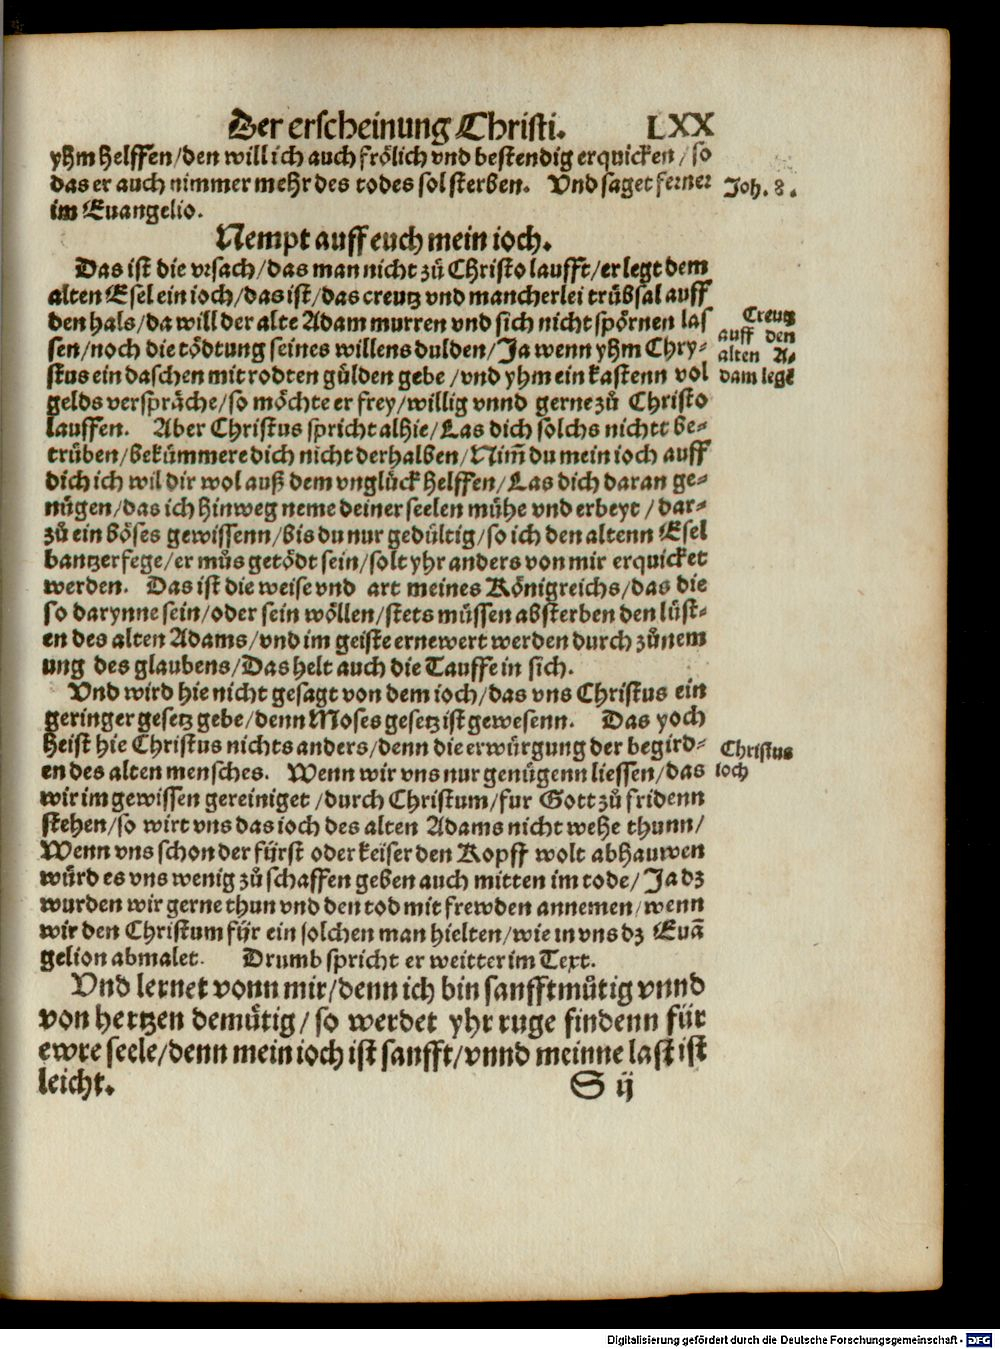 Der erscheinung Christi. LXX
yhm helffen/den will ich auch frölich vnd bestendig erquicken/so
das er auch nimmer mehr des todes sol sterben. Vnd saget ferner
Joh. 8.
im Euangelio.
Nempt auff euch mein ioch.
Das ist die vrsach/das man nicht zů Christo laufft/er legt dem
alten Esel ein ioch/das ist/das creutz vnd mancherlei trübsal auff
den hals/da will der alte Adam murren vnd sich nicht spörnen las
sen/noch die tödtung seines willens dulden/Ja wenn yhm Chry-
stus ein daschen mit rodten gülden gebe/vnd yhm ein kastenn vol
Creutz
auff den
alten A-
dam legt
gelds verspräche/so möchte er frey/willig vnnd gerne zů Christo
lauffen. Aber Christus spricht alhie/Las dich solchs nichtt be-
trüben/bekümmere dich nicht derhalben/Nim̃ du mein ioch auff
dich ich wil dir wol auß dem vnglück helffen/Las dich daran ge-
nügen/das ich hinweg neme deiner seelen mühe vnd erbeyt/dar-
zů ein böses gewissenn/bis du nur gedültig/so ich den altenn Esel
bantzerfege/er můs getödt sein/solt yhr anders von mir erquicket
werden. Das ist die weise vnd art meines Königreichs/das die
so darynne sein/oder sein wöllen/stets müssen absterben den lüst-
en des alten Adams/vnd im geiste ernewert werden durch zůnem
ung des glaubens/Das helt auch die Tauffe in sich.
Vnd wird hie nicht gesagt von dem ioch/das vns Christus ein
geringer gesetz gebe/denn Moses gesetz ist gewesenn. Das yoch
heist hie Christus nichts anders/denn die erwürgung der begird-
en des alten mensches. Wenn wir vns nur genügenn liessen/das
Christus
ioch
wir im gewissen gereiniget/durch Christum/fur Gott zů fridenn
stehen/so wirt vns das ioch des alten Adams nicht wehe thunn/
Wenn vns schon der fürst oder keiser den Kopff wolt abhauwen
würd es vns wenig zů schaffen geben auch mitten im tode/Ja dz
wurden wir gerne thun vnd den tod mit frewden annemen/wenn
wir den Christum für ein solchen man hielten/wie in vns dz Euã
gelion abmalet. Drumb spricht er weitter im Text.
Vnd lernet vonn mir/denn ich bin sanfftmütig vnnd
von hertzen demütig/so werdet yhr ruge findenn für
ewre seele/denn mein ioch ist sanfft/vnnd meinne last ist
leicht.
S ij
Digitalisierung gefördert durch die Deutsche Forschungsgemeinschaft - DFG